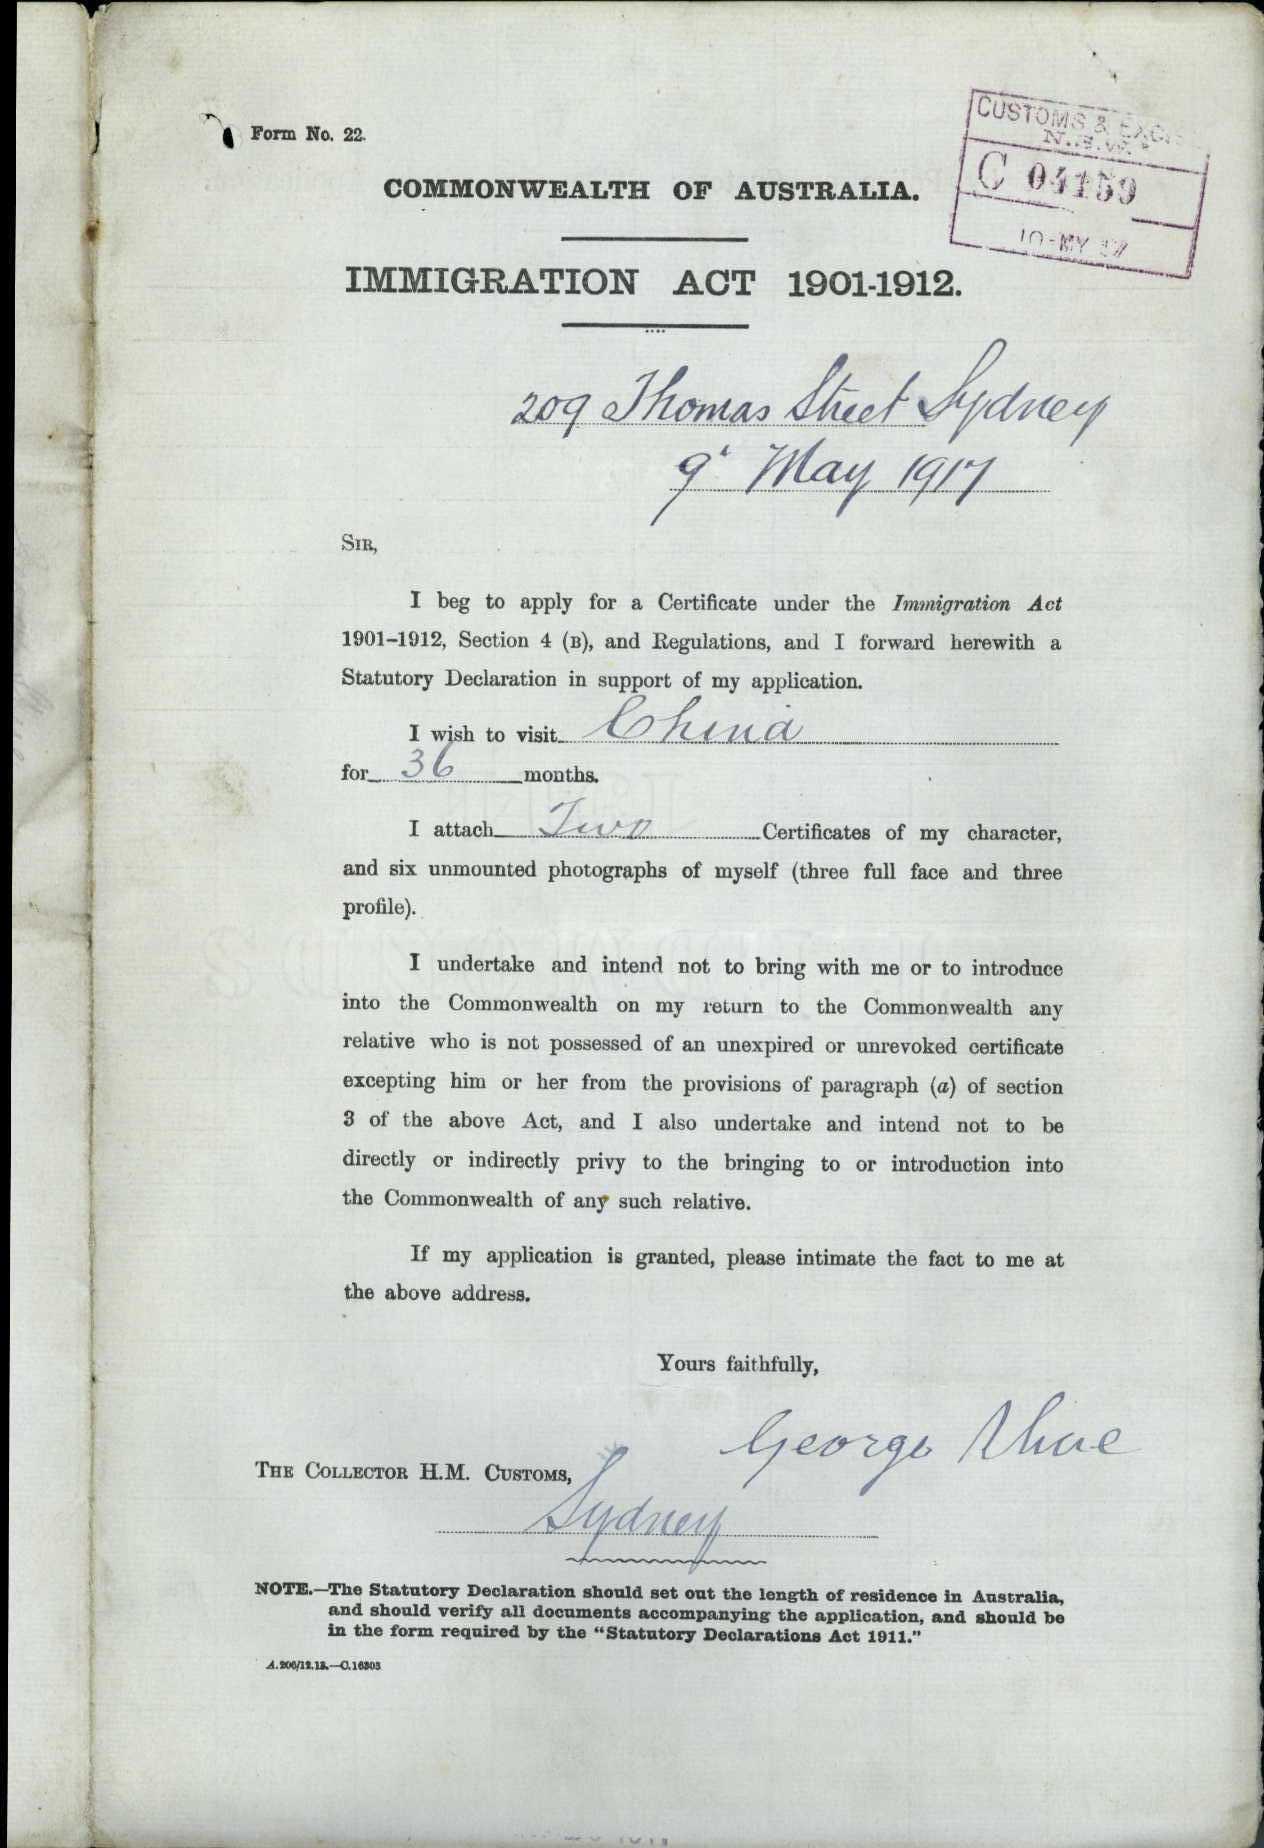 Form No. 22.
CUSTOMS & EXCISE
N.S.W.
C 04159
10-MY 17
COMMONWEALTH OF AUSTRALIA.
IMMIGRATION ACT 1901-1912.
209 Thomas Street Sydney
9 May 1917
SIR,
I beg to apply for a Certificate under the Immigration Act
1901–1912, Section 4 (B), and Regulations, and I forward herewith a
Statutory Declaration in support of my application.
I wish to visit China
for 36 months.
I attach Two Certificates of my character,
and six unmounted photographs of myself (three full face and three
profile).
I undertake and intend not to bring with me or to introduce
into the Commonwealth on my return to the Commonwealth any
relative who is not possessed of an unexpired or unrevoked certificate
excepting him or her from the provisions of paragraph (a) of section
3 of the above Act, and I also undertake and intend not to be
directly or indirectly privy to the bringing to or introduction into
the Commonwealth of any such relative.
If my application is granted, please intimate the fact to me at
the above address.
Yours faithfully,
George
THE COLLECTOR H.M. CUSTOMS,
Sydney
NOTE.—The Statutory Declaration should set out the length of residence in Australia,
and should verify all documents accompanying the application, and should be
in the form required by the "Statutory Declarations Act 1911."
A.206/12.13.—C.16303